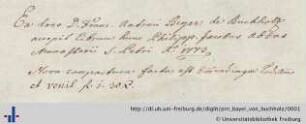 Ex dono D. Franc. Antoni Beyer de Buchholz
accepit librum hunc Philippus Jacobus Abbas
Monasterii S. Petri Ao. 1773.
Nova compactura facta est
et venit f. 1. 30 x.
http://dl.ub.uni-freiburg.de/diglit/prn_bayer_von_buchholz/0001
© Universitätsbibliothek Freiburg